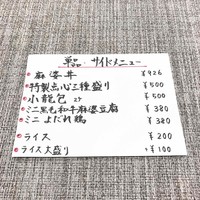 単品 サイドメニュー
麻婆丼 ¥926
特製点心三種盛り ¥500
小籠包 2ケ ¥500
ミニ黒毛和牛麻婆豆腐 ¥380
ミニ よだれ鶏 ¥380
ライス ¥200
ライス大盛り ¥100